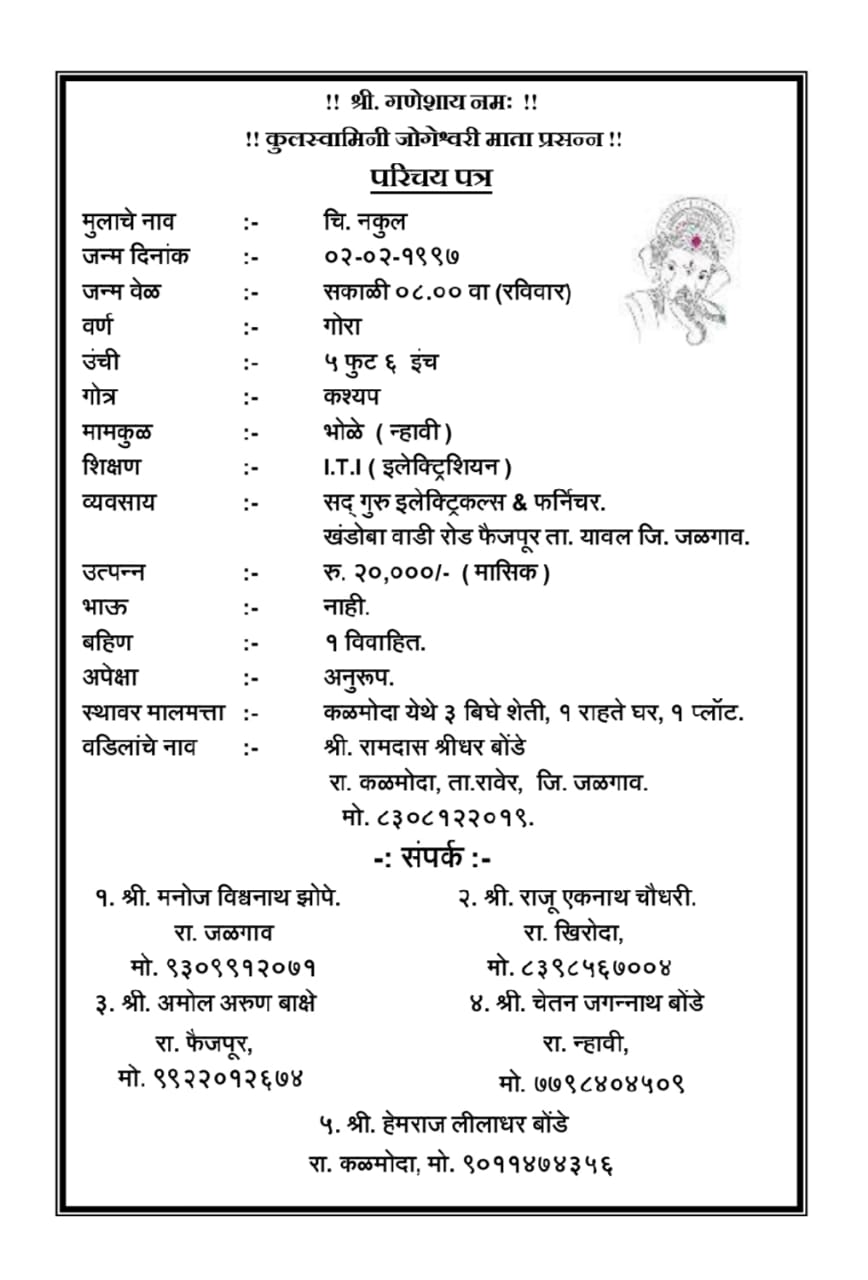 !! श्री. गणेशाय नमः !!
!! कुलस्वामिनी जोगेश्वरी माता प्रसन्न !!
परिचय पत्र
मुलाचे नाव :- चि. नकुल
जन्म दिनांक :- ०२-०२-१९९७
जन्म वेळ :- सकाळी ०८.०० वा (रविवार)
वर्ण :- गोरा
उंची :- ५ फुट ६ इंच
गोत्र :- कश्यप
मामकुळ :- भोळे ( न्हावी )
शिक्षण :- I.T.I ( इलेक्ट्रिशियन )
व्यवसाय :- सद् गुरु इलेक्ट्रिकल्स & फर्निचर.
खंडोबा वाडी रोड फैजपूर ता. यावल जि. जळगाव.
उत्पन्न :- रु. २०,०००/- ( मासिक )
भाऊ :- नाही.
बहिण :- १ विवाहित.
अपेक्षा :- अनुरूप.
स्थावर मालमत्ता :- कळमोदा येथे ३ बिघे शेती, १ राहते घर, १ प्लॉट.
वडिलांचे नाव :- श्री. रामदास श्रीधर बोंडे
रा. कळमोदा, ता.रावेर, जि. जळगाव.
मो. ८३०८१२२०१९.
-: संपर्क :-
१. श्री. मनोज विश्वनाथ झोपे. २. श्री. राजू एकनाथ चौधरी.
रा. जळगाव रा. खिरोदा,
मो. ९३०९९१२०७१ मो. ८३९८५६७००४
३. श्री. अमोल अरुण बाक्षे ४. श्री. चेतन जगन्नाथ बोंडे
रा. फैजपूर, रा. न्हावी,
मो. ९९२२०१२६७४ मो. ७७९८४०४५०९
५. श्री. हेमराज लीलाधर बोंडे
रा. कळमोदा, मो. ९०११४७४३५६